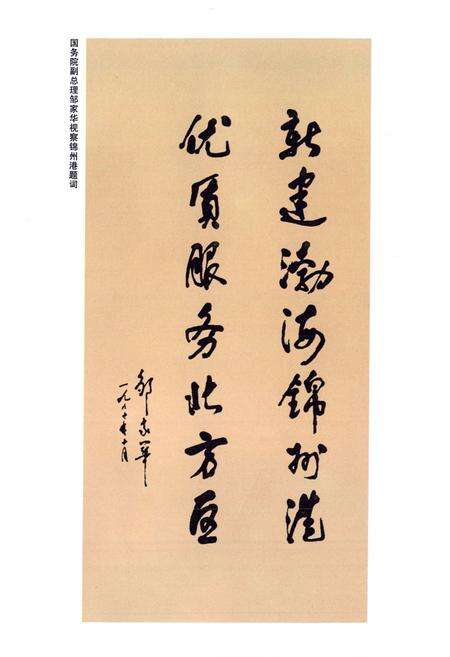 新建渤海錦州港
优质服务北方区
邹家华
国务院副总理邹家华视察锦州港题词